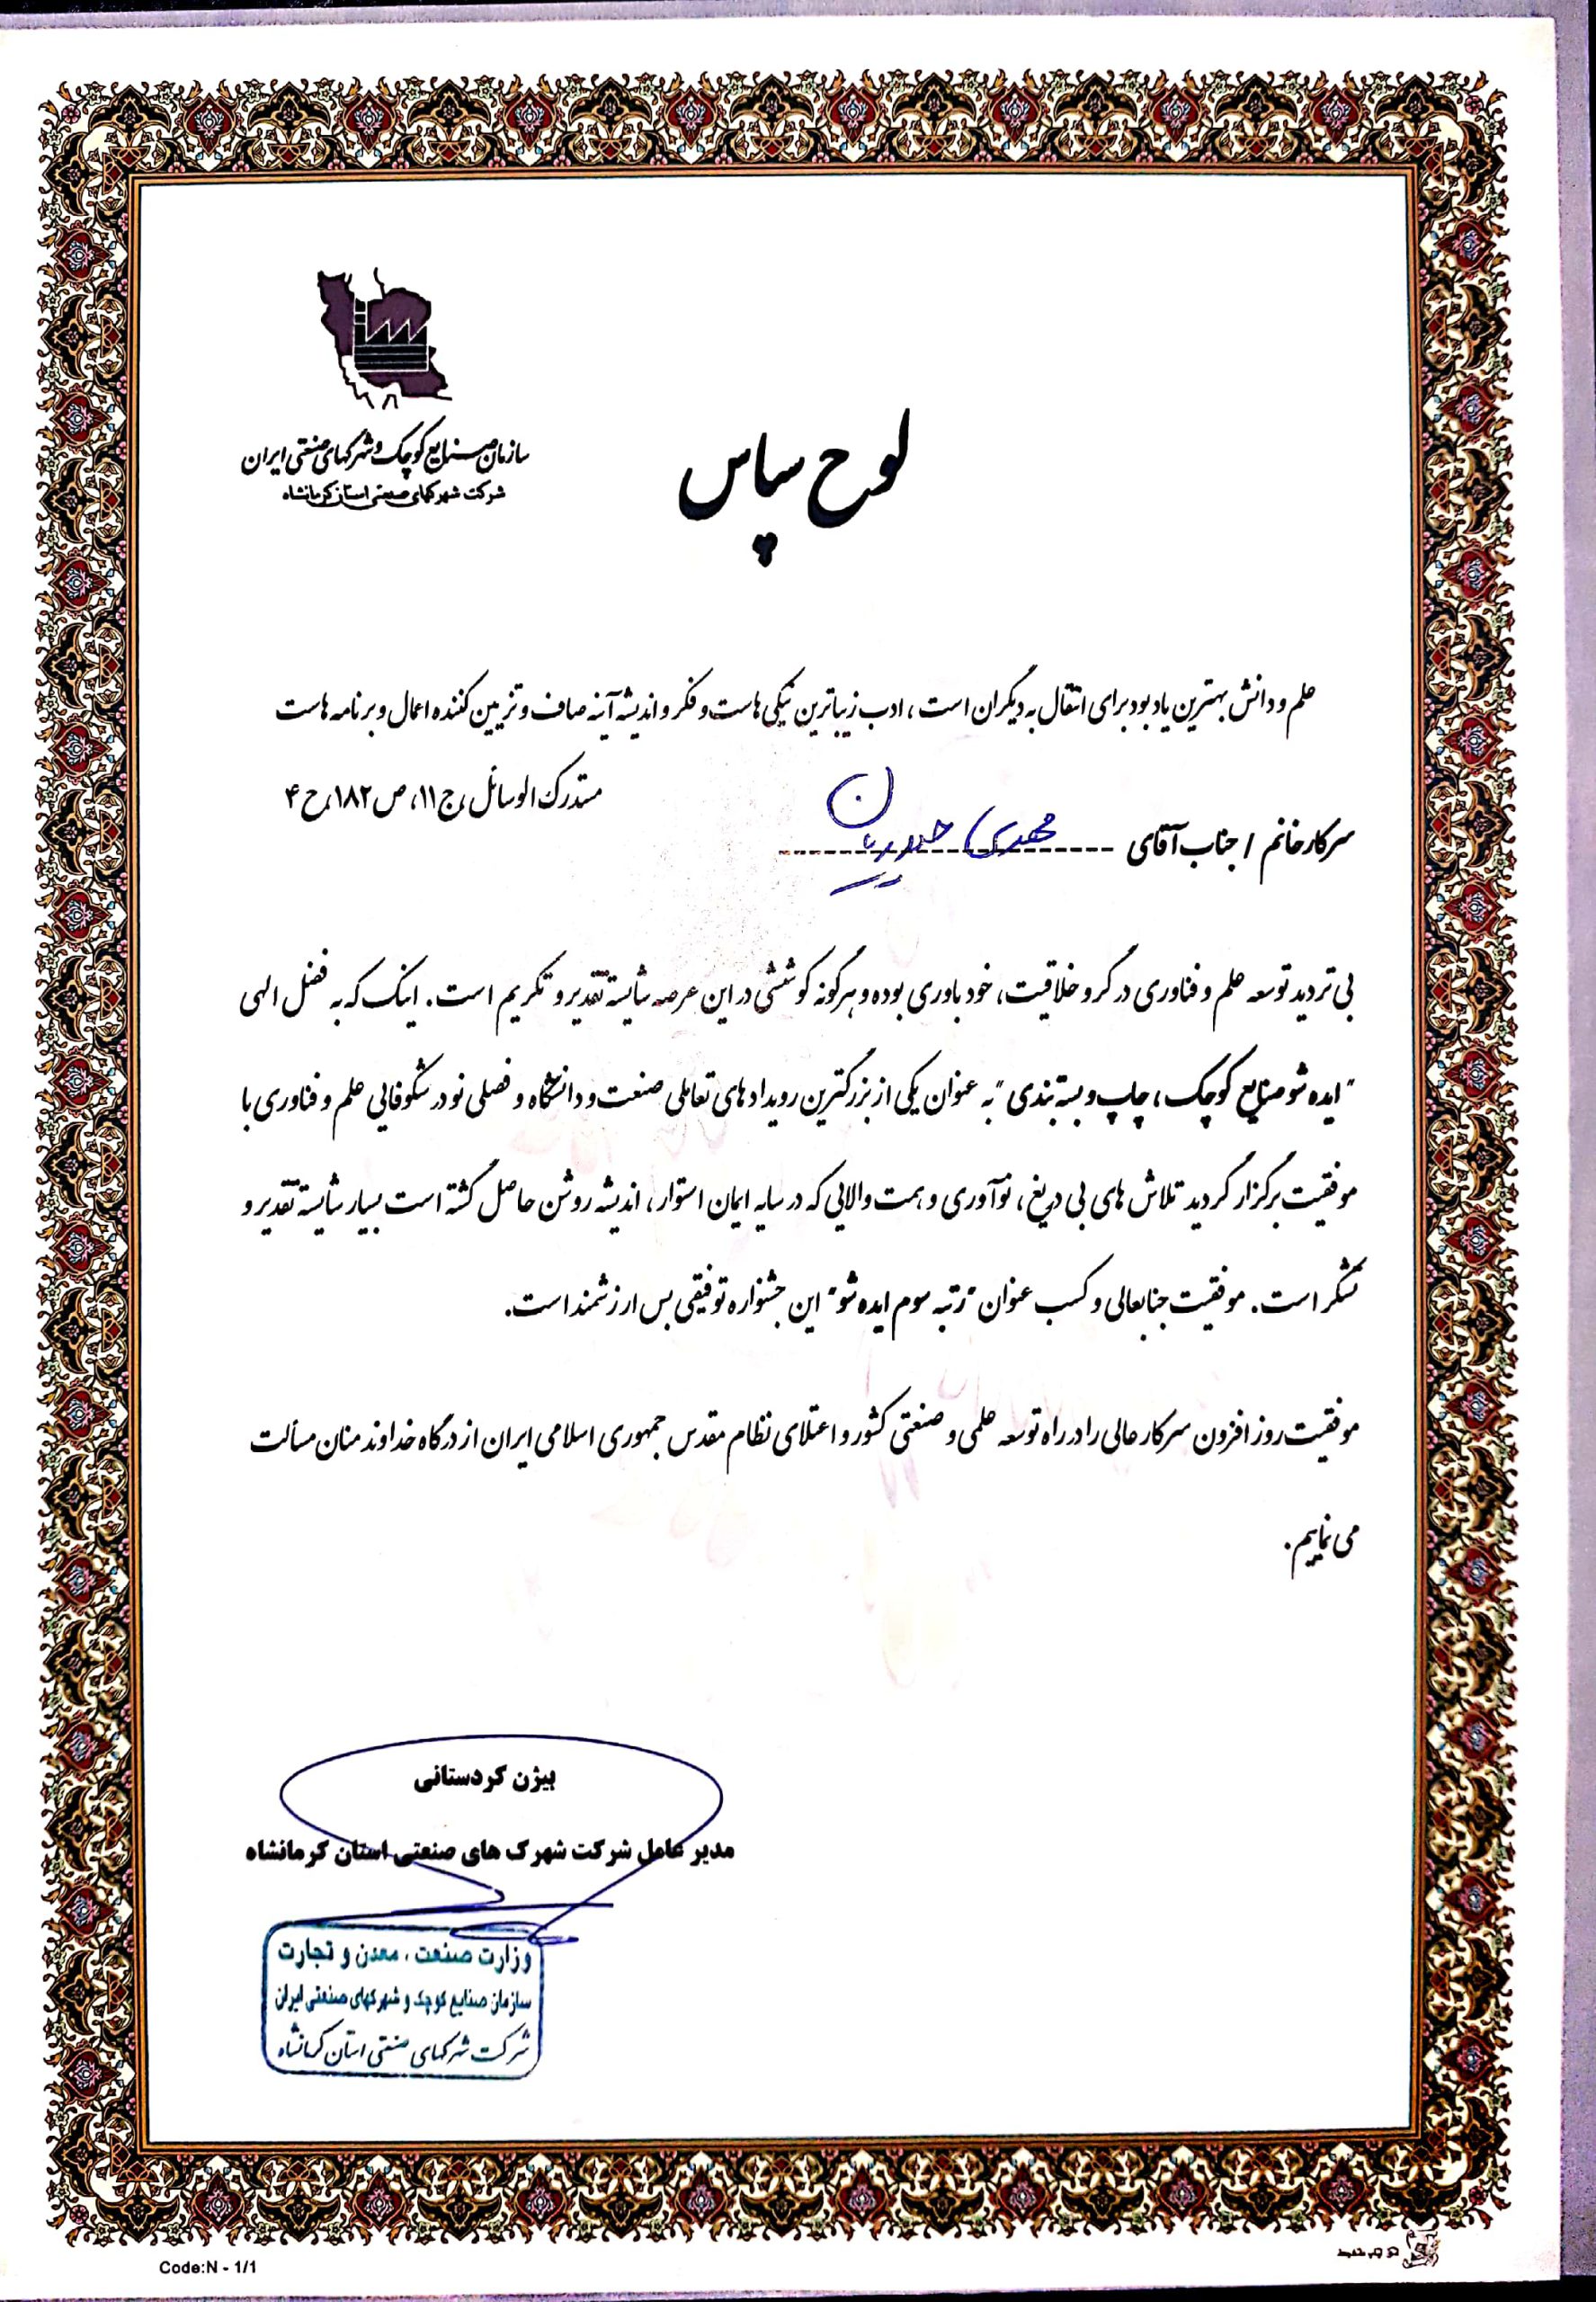 سازمان صنایع کوچک و شهرکهای صنعتی ایران
شرکت شهرکهای صنعتی استان کرمانشاه
لوح سپاس
علم و دانش بهترین یادبود برای انتقال به دیگران است، ادب زیباترین نیکی هاست و فکر و اندیشه آینه صاف و تزیین کننده اعمال و برنامه هاست
مستدرک الوسائل، ج ۱۱، ص ۱۸۲، ح ۴
سرکار خانم / جناب آقای مهدی حیدریان
بی تردید توسعه علم و فناوری در گرو خلاقیت، خودباوری بوده و هرگونه کوششی در این عرصه شایسته تقدیر و تکریم است. اینک که به فضل الهی
"ایده شو صنایع کوچک، چاپ و بسته بندی" به عنوان یکی از بزرگترین رویدادهای تعاملی صنعت و دانشگاه و فصلی نو در شکوفایی علم و فناوری با
موفقیت برگزار گردید تلاش های بی دریغ، نوآوری و همت والایی که در سایه ایمان استوار، اندیشه روشن حاصل گشته است بسیار شایسته تقدیر و
تشکر است. موفقیت جنابعالی و کسب عنوان "رتبه سوم ایده شو" این جشنواره توفیقی بس ارزشمند است.
موفقیت روز افزون سرکار عالی را در راه توسعه علمی و صنعتی کشور و اعتلای نظام مقدس جمهوری اسلامی ایران از درگاه خداوند منان مسألت
می نماییم.
بیژن کردستانی
مدیر عامل شرکت شهرک های صنعتی استان کرمانشاه
وزارت صنعت، معدن و تجارت
سازمان صنایع کوچک و شهرکهای صنعتی ایران
شرکت شهرکهای صنعتی استان کرمانشاه
Code:N - 1/1